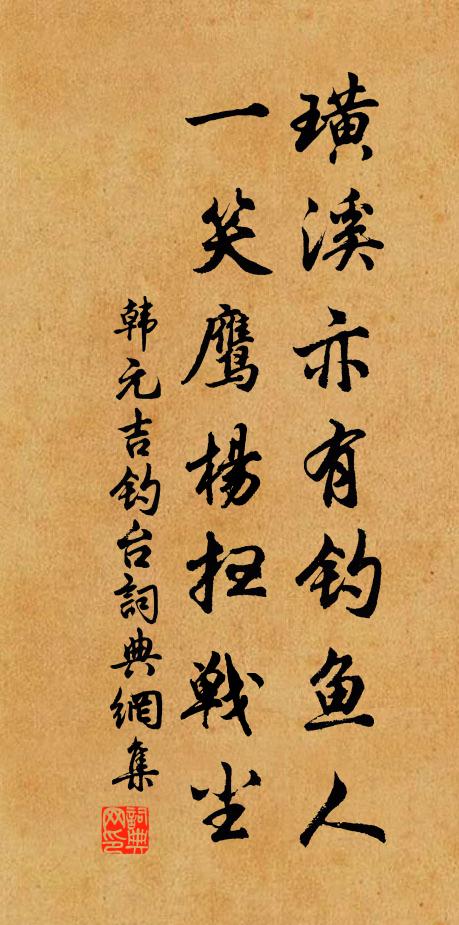 璜溪亦有钓鱼人
一笑鹰杨扫战尘
韩元吉钓台詞典網集
詞典网印